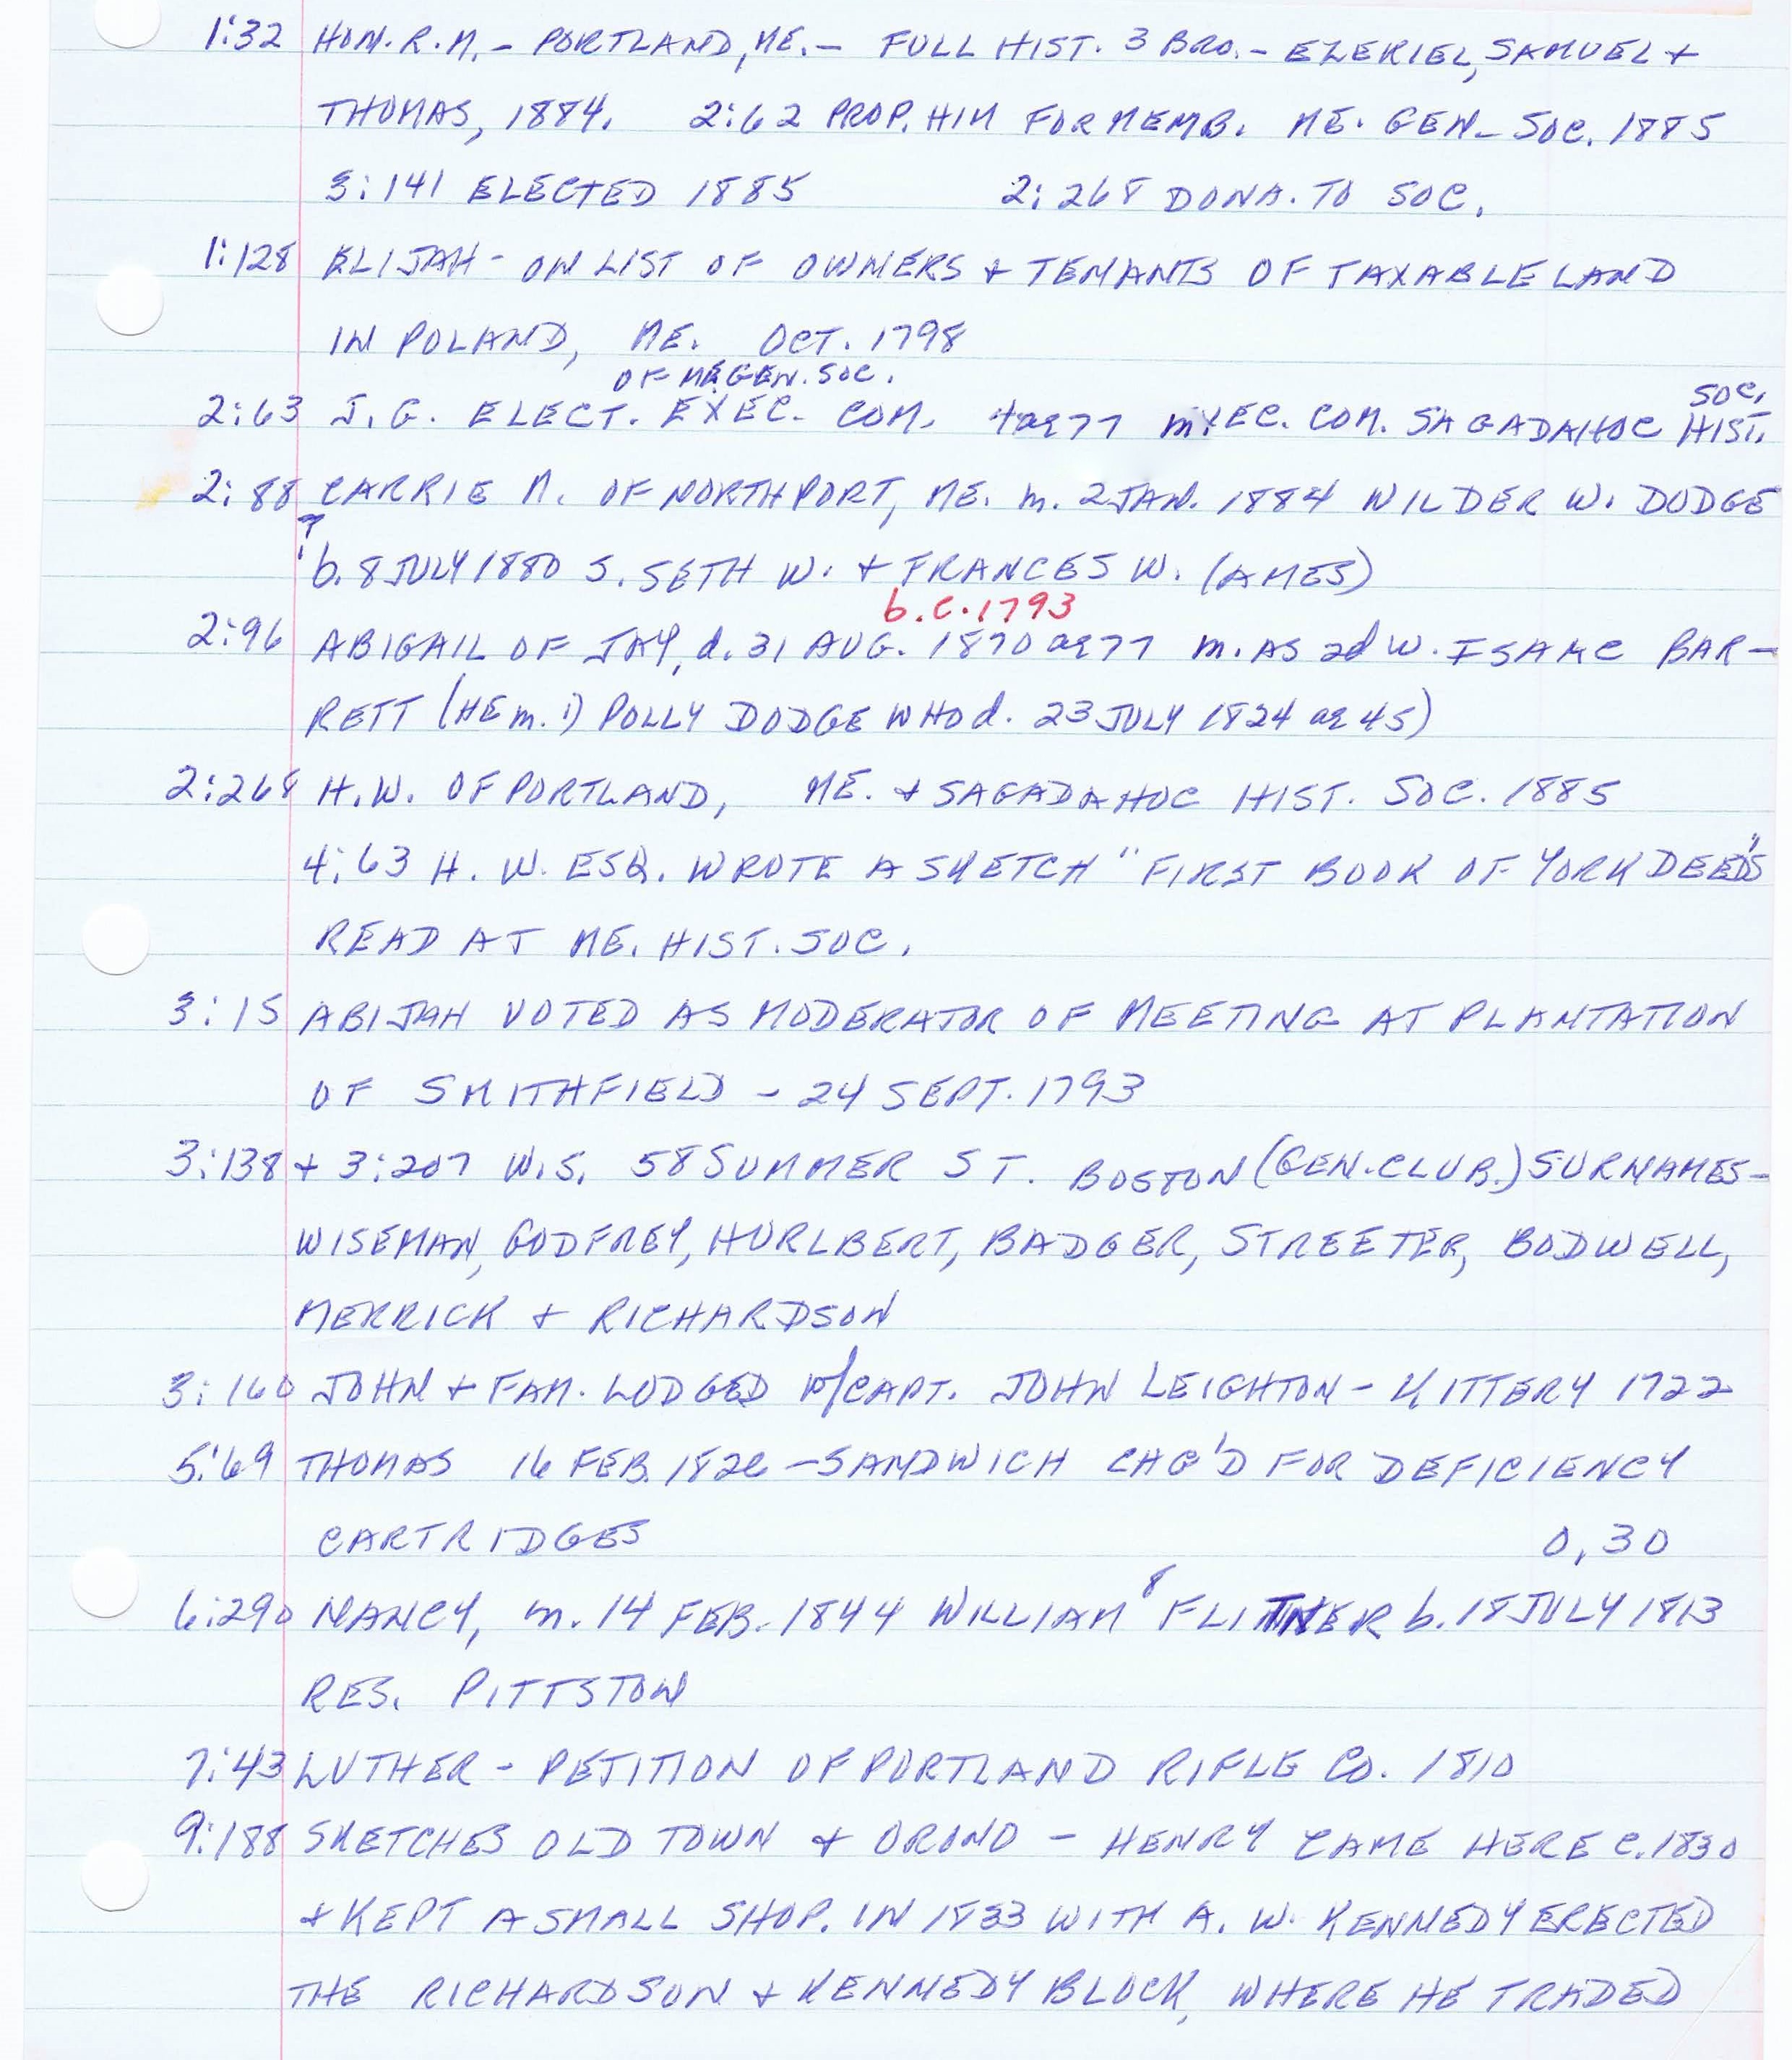 1:32 HON. R.M. – PORTLAND, ME. – FULL HIST. 3 BRO. – EZEKIEL, SAMUEL +
THOMAS, 1884. 2:62 PROP. HIM FOR MEMB. ME. GEN. SOC. 1885
3:141 ELECTED 1885 2:268 DONA. TO SOC.
1:128 ELIJAH – ON LIST OF OWNERS + TENANTS OF TAXABLE LAND
IN POLAND, ME. OCT. 1798
OF ME. GEN. SOC.
SOC.
2:63 J.G. ELECT. EXEC. COM. EXEC. COM. SAGADAHOC HIST.
2:88 CARRIE M. OF NORTHPORT, ME. m. 2 JAN. 1884 WILDER W. DODGE
? b. 8 JULY 1880 S. SETH W. + FRANCES W. (AMES)
b. c. 1793
2:96 ABIGAIL OF JAY, d. 31 AUG. 1870 ae 77 m. AS 2d W. ISAAC BAR–
RETT (HE m. 1) POLLY DODGE WHO d. 23 JULY 1824 ae 45)
2:268 H.W. OF PORTLAND, ME. + SAGADAHOC HIST. SOC. 1885
4:63 H. W. ESQ. WROTE A SKETCH "FIRST BOOK OF YORK DEEDS"
READ AT ME. HIST. SOC.
3:15 ABIJAH VOTED AS MODERATOR OF MEETING AT PLANTATION
OF SMITHFIELD – 24 SEPT. 1793
3:138 + 3:207 W.S. 58 SUMMER ST. BOSTON (GEN. CLUB.) SURNAMES –
WISEMAN, GODFREY, HURLBERT, BADGER, STREETER, BODWELL,
MERRICK + RICHARDSON
3:160 JOHN + FAM. LODGED w/CAPT. JOHN LEIGHTON – KITTERY 1722
5:69 THOMAS 16 FEB. – SANDWICH CHG'D FOR DEFICIENCY
CARTRIDGES 0,30
6:290 NANCY, m. 14 FEB. 1844 WILLIAM⁸ FLITNER b. 18 JULY 1813
RES. PITTSTON
7:43 LUTHER – PETITION OF PORTLAND RIFLE CO. 1810
9:188 SKETCHES OLD TOWN + ORONO – HENRY CAME HERE C. 1830
+ KEPT A SMALL SHOP. IN 1833 WITH A. W. KENNEDY ERECTED
THE RICHARDSON + KENNEDY BLOCK, WHERE HE TRADED